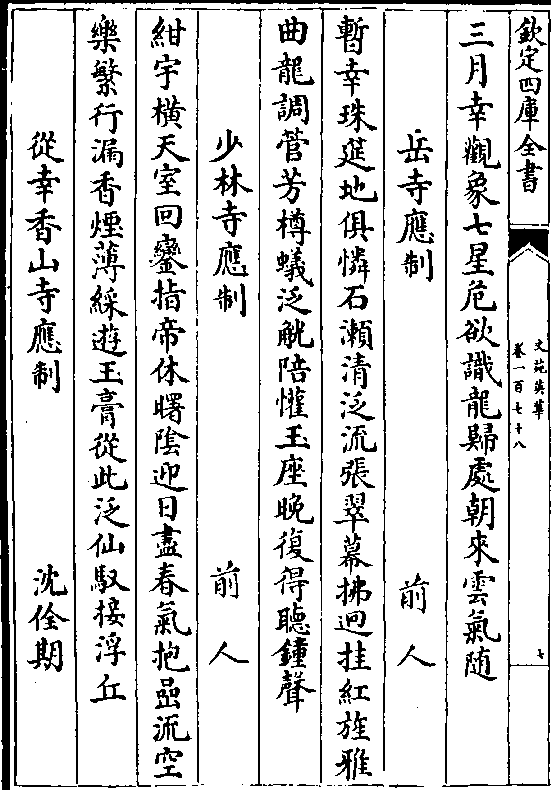 欽定四庫全書
文苑英華
卷一百七十八
七
三月幸觀象七星危欲識龍歸處朝來雲氣随
岳寺應制 前人
暫幸珠筵地俱憐石瀬清泛流張翠幕拂迥挂紅旌雅
曲龍調管芳樽蟻泛觥陪懽玉座晚復得聽鐘聲
少林寺應制 前人
紺宇横天室回鑾指帝休曙陰迎日盡春氣抱嵒流空
樂繁行漏香煙薄綵遊玉膏從此泛仙馭接浮丘
從幸香山寺應制 沈佺期